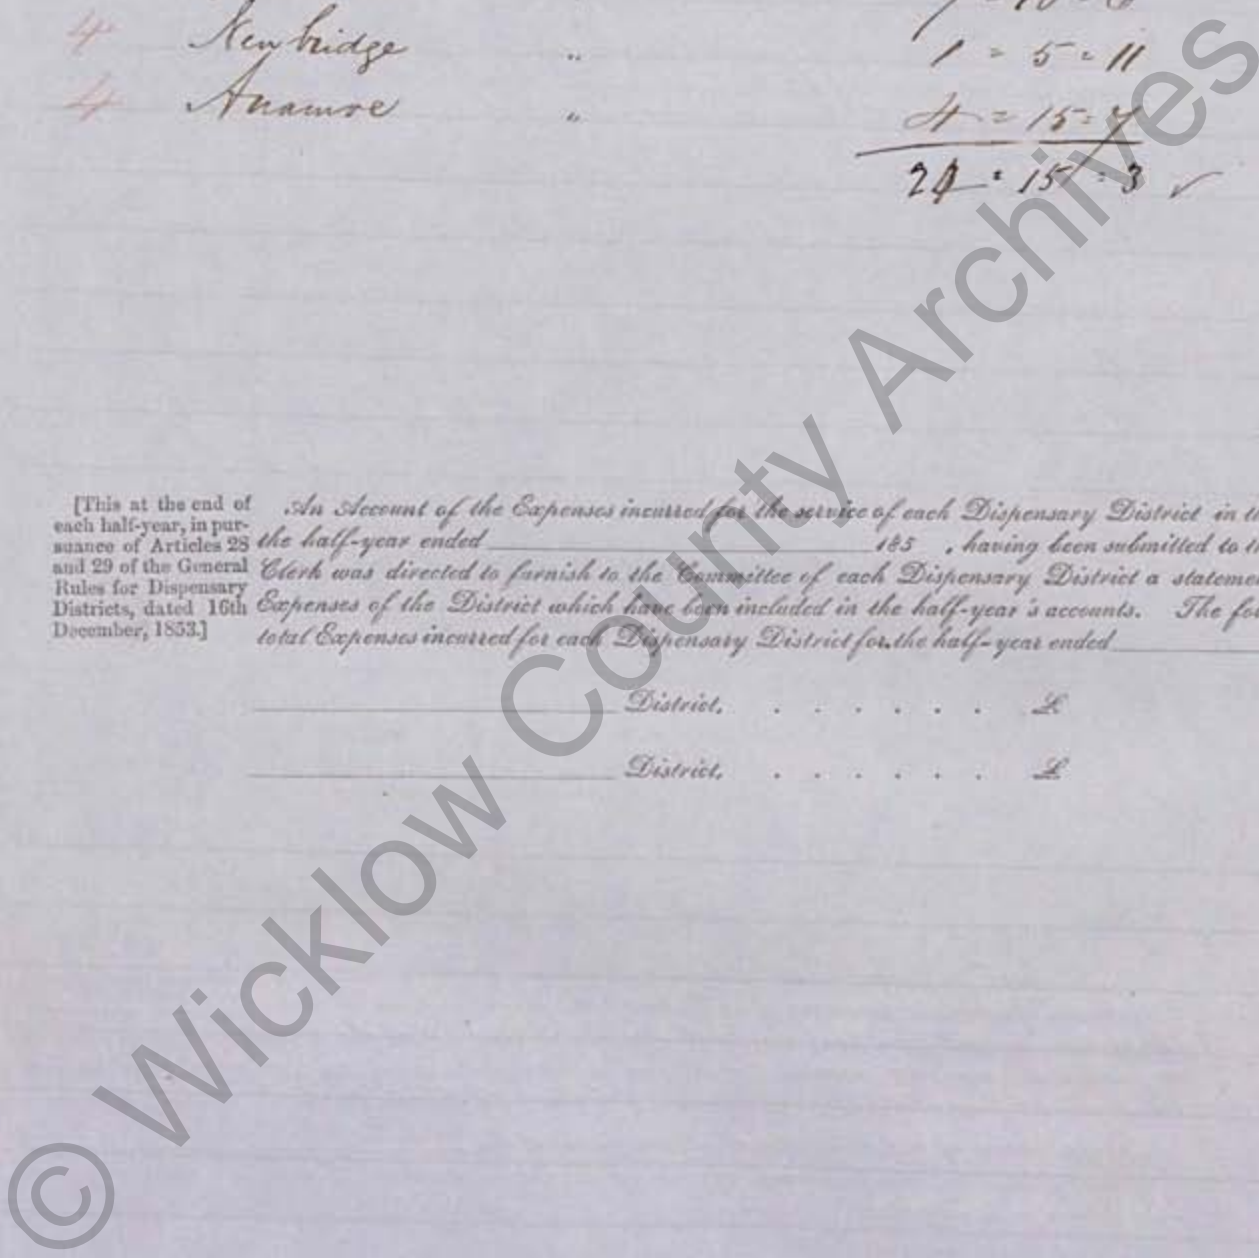 4 Newbridge " 1 = 5 = 11
4 Anamoe " 4 = 15 = 7
24 = 15 = 3 ✓
[This at the end of each half-year, in pursuance of Articles 28 and 29 of the General Rules for Dispensary Districts, dated 16th December, 1853.]
An Account of the Expenses incurred for the service of each Dispensary District in t
the half-year ended 185 , having been submitted to t
Clerk was directed to furnish to the Committee of each Dispensary District a stateme
Expenses of the District which have been included in the half-year's accounts. The fo
total Expenses incurred for each Dispensary District for the half-year ended
District, . . . . . . £
District, . . . . . . £
© Wicklow County Archives